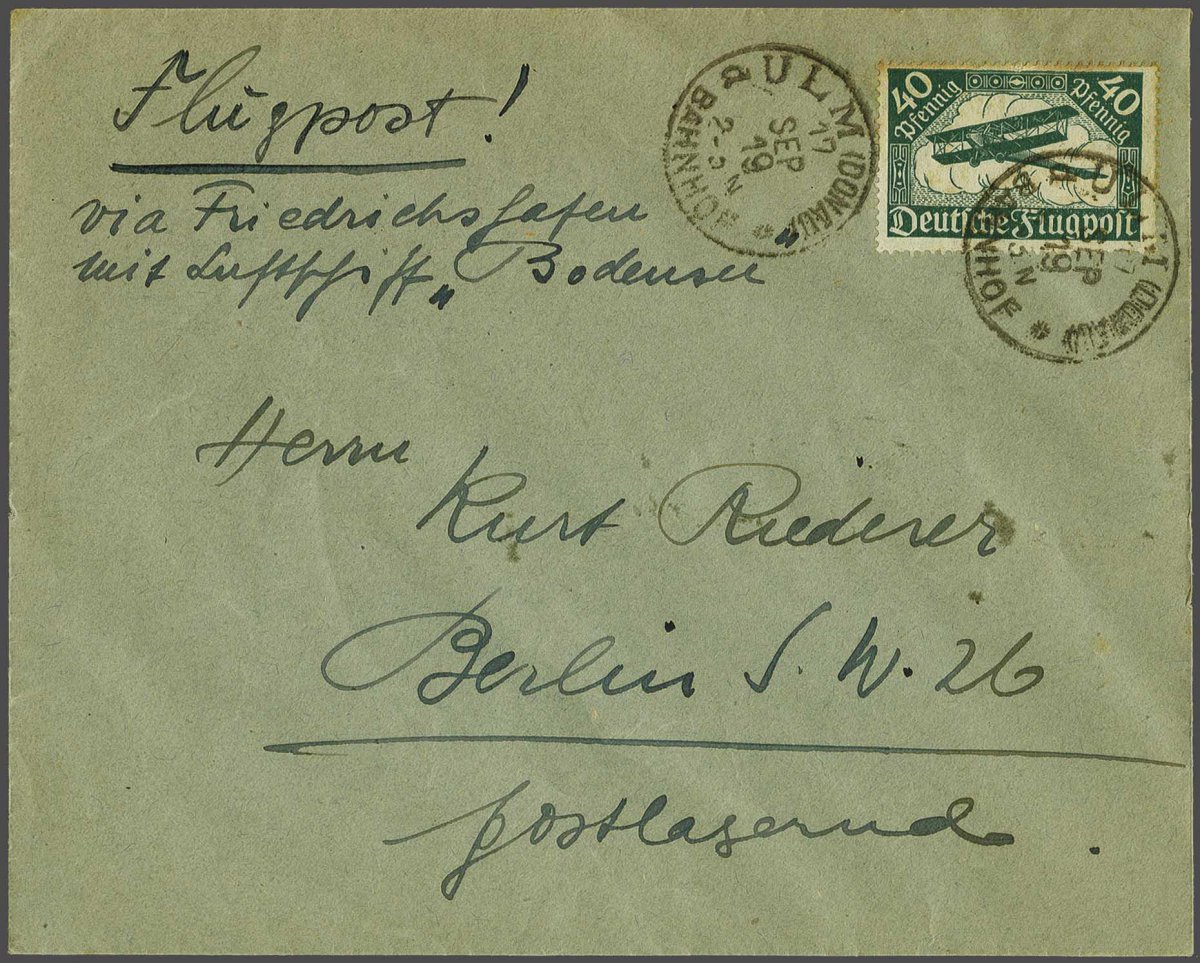 Flugpost!
via Friedrichshafen
mit Luftschiff „Bodensee"
ULM (DONAU)
17
SEP
19
2-3 N
BAHNHOF
40 40
Pfennig Pfennig
Deutsche Flugpost
SEP
19
3 N
BAHNHOF
Herrn
Kurt Riederer
Berlin S. W. 26
postlagernd.